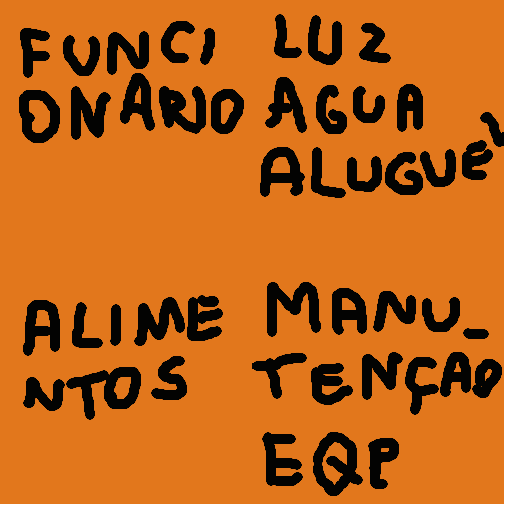 FUNCI
ONARIO
LUZ
AGUA
ALUGUEL
ALIME
NTOS
MANU_
TENÇAO
EQP